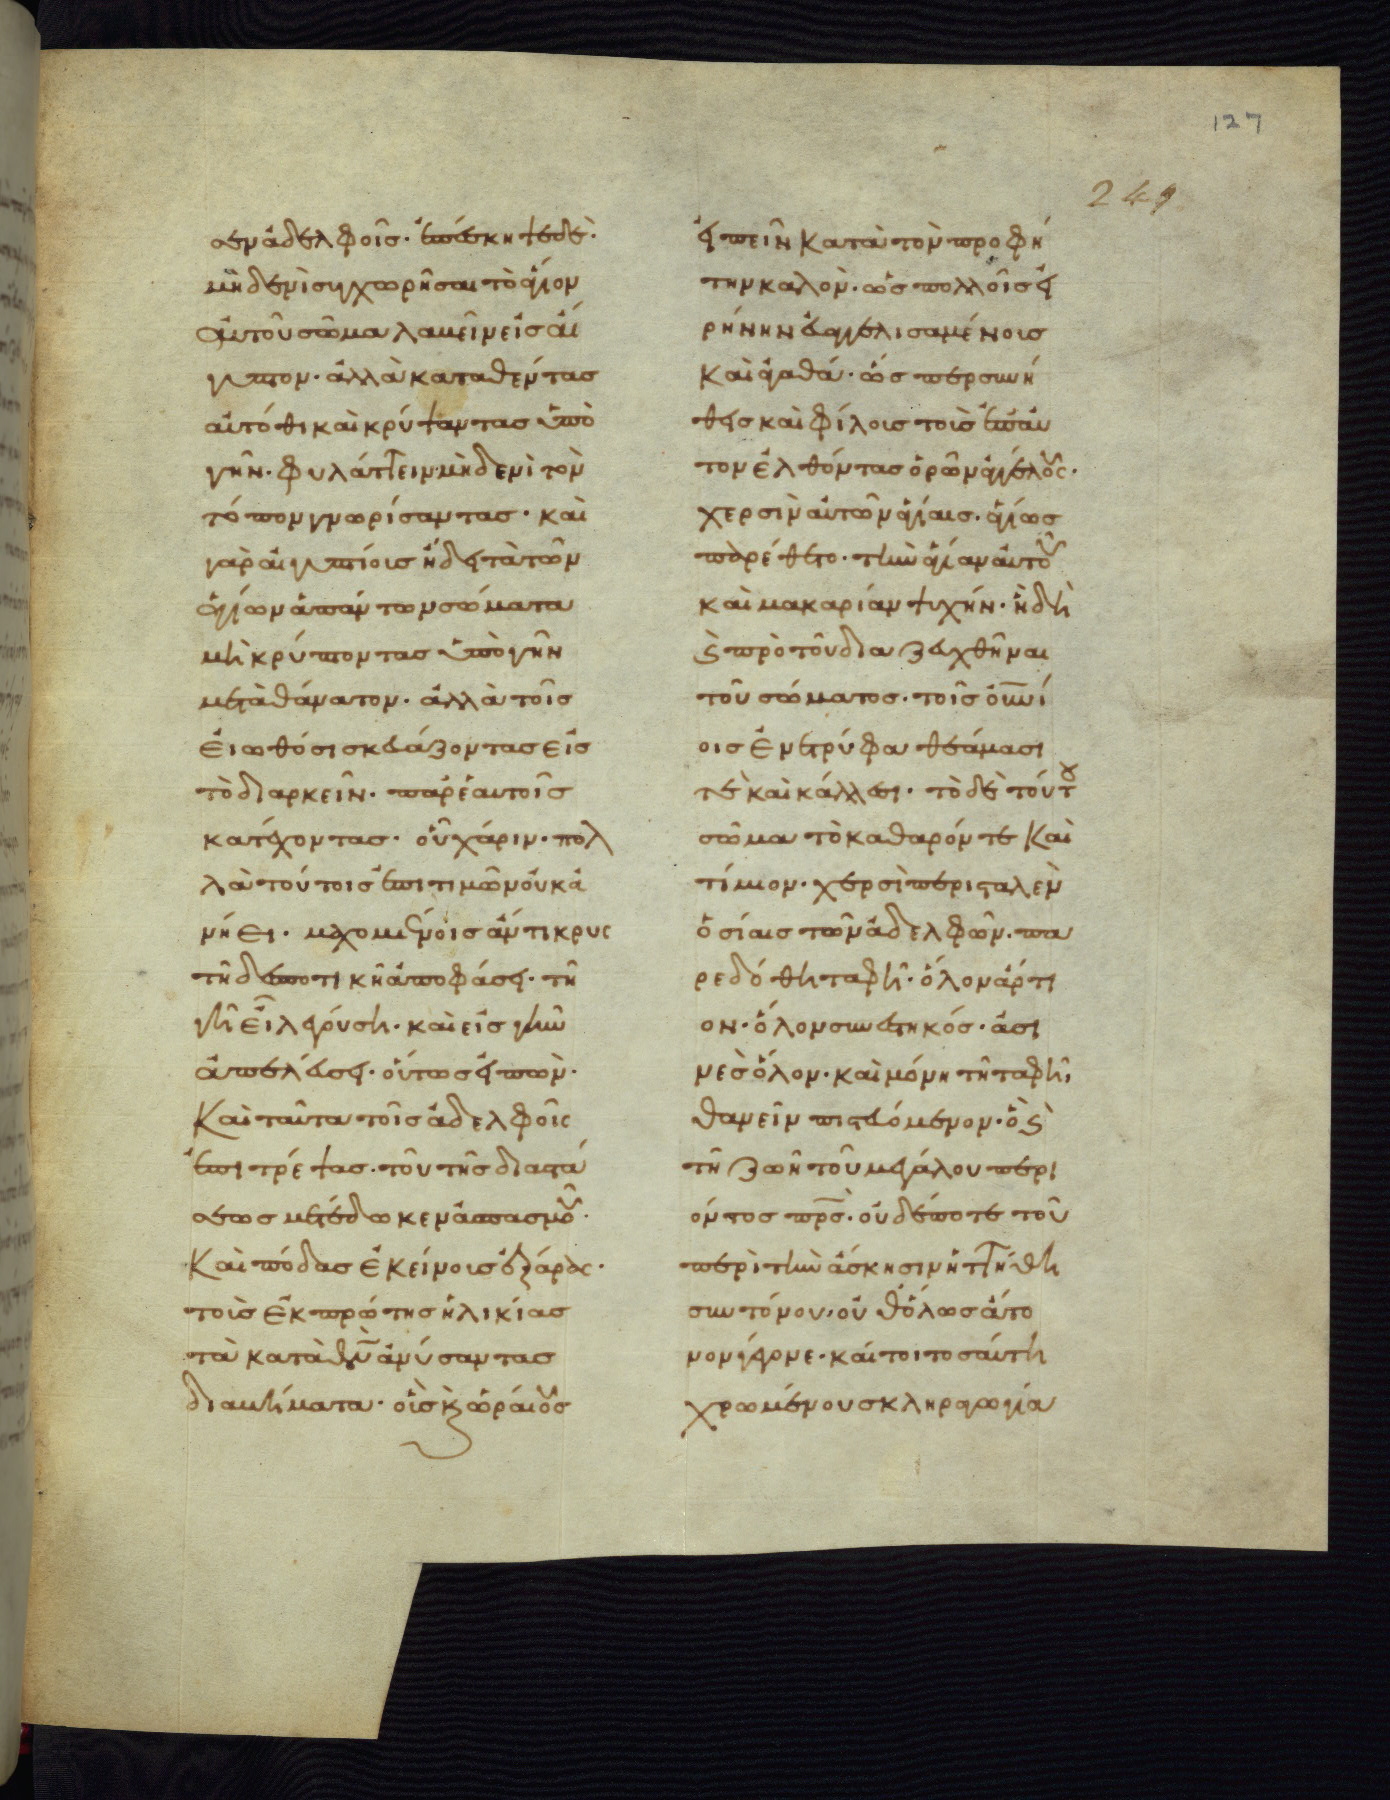 127
249
σεν ἀδελφοῖς· ἐπέσκηψε δὲ·
μηδενὶ συγχωρῆσαι τὸ ἅγιον
αὐτοῦ σῶμα λαβεῖν εἰς αἴ
γυπτον· ἀλλὰ καταθέντας
αὐτόθι καὶ κρύψαντας ὑπὸ
γῆν· φυλάττειν μηδενὶ τὸν
τόπον γνωρίσαντας· καὶ
γὰρ αἰγυπτίοις ᾔδει τὰ τῶν
ἁγίων ἁπάντων σώματα
μὴ κρύπτοντας ὑπὸ γῆν
μετὰ θάνατον· ἀλλὰ τοῖς
εἰωθόσι σκευάζοντας εἰς
τὸ διαρκεῖν· παρ' ἑαυτοῖς
κατέχοντας· οὗ χάριν· πολ
λὰ τούτοις ἐπιτιμῶν οὐκ ἀ
νήει· μαχομένοις ἄντικρυς
τῇ δεσποτικῇ ἀποφάσει· τῇ
γῆ εἶ λεγούσῃ· καὶ εἰς γῆν
ἀπελεύσει· οὕτως εἰπὼν·
Καὶ ταῦτα τοῖς ἀδελφοῖς
ἐπιτρέψας· τοῦ τῆς διαστά
σεως μετέδωκεν ἀσπασμοῦ·
Καὶ πόδας ἐκείνοις ἐξάρας·
τοῖς ἐκ πρώτης ἡλικίας
τὰ κατὰ θν ἀνύσαντας
διαβήματα· οἷς καὶ ὡραίους
εἰπεῖν Κατὰ τὸν προφή
την καλὸν· ὡς πολλοῖς εἰ
ρήνην εὐαγγελισαμένοις
Καὶ ἀγαθά· ὥσπερ συνή
θεις καὶ φίλους τοὺς ἐπ' αὐ
τὸν ἐλθόντας ὁρῶν ἀγγέλους·
χερσὶν αὐτῶν ἁγίαις· ἁγίως
παρέθετο· τὴν ἁγίαν αὐτοῦ
καὶ μακαρίαν ψυχήν· ἤδη
καὶ πρὸ τοῦ διαζευχθῆναι
τοῦ σώματος· τοῖς οὐνί
οις ἐντρυφᾶν θεάμασί
τε καὶ κάλλεσι· τὸ δὲ τούτου
σῶμα τὸ καθαρόν τε Καὶ
τίμιον· χερσὶ περισταλὲν
ὁσίαις τῶν ἀδελφῶν· πα
ρεδόθη ταφῇ· ὅλον ἄρτι
ον· ὅλον συνεστηκός· ἀσι
νὲς ὅλον· καὶ μόνῃ τῇ ταφῇ
θανεῖν πιστευόμενον· ὃ καὶ
τῇ ζωῇ τοῦ μεγάλου περι
όντος πρς· οὐδέποτε τοῦ
περὶ τὴν ἄσκησιν ἡττήθη
συντόνου· οὐδ' ὅλως ἄτο
νον γέγονε· καίτοι τοσαύτῃ
χρωμένου σκληραγωγίᾳ